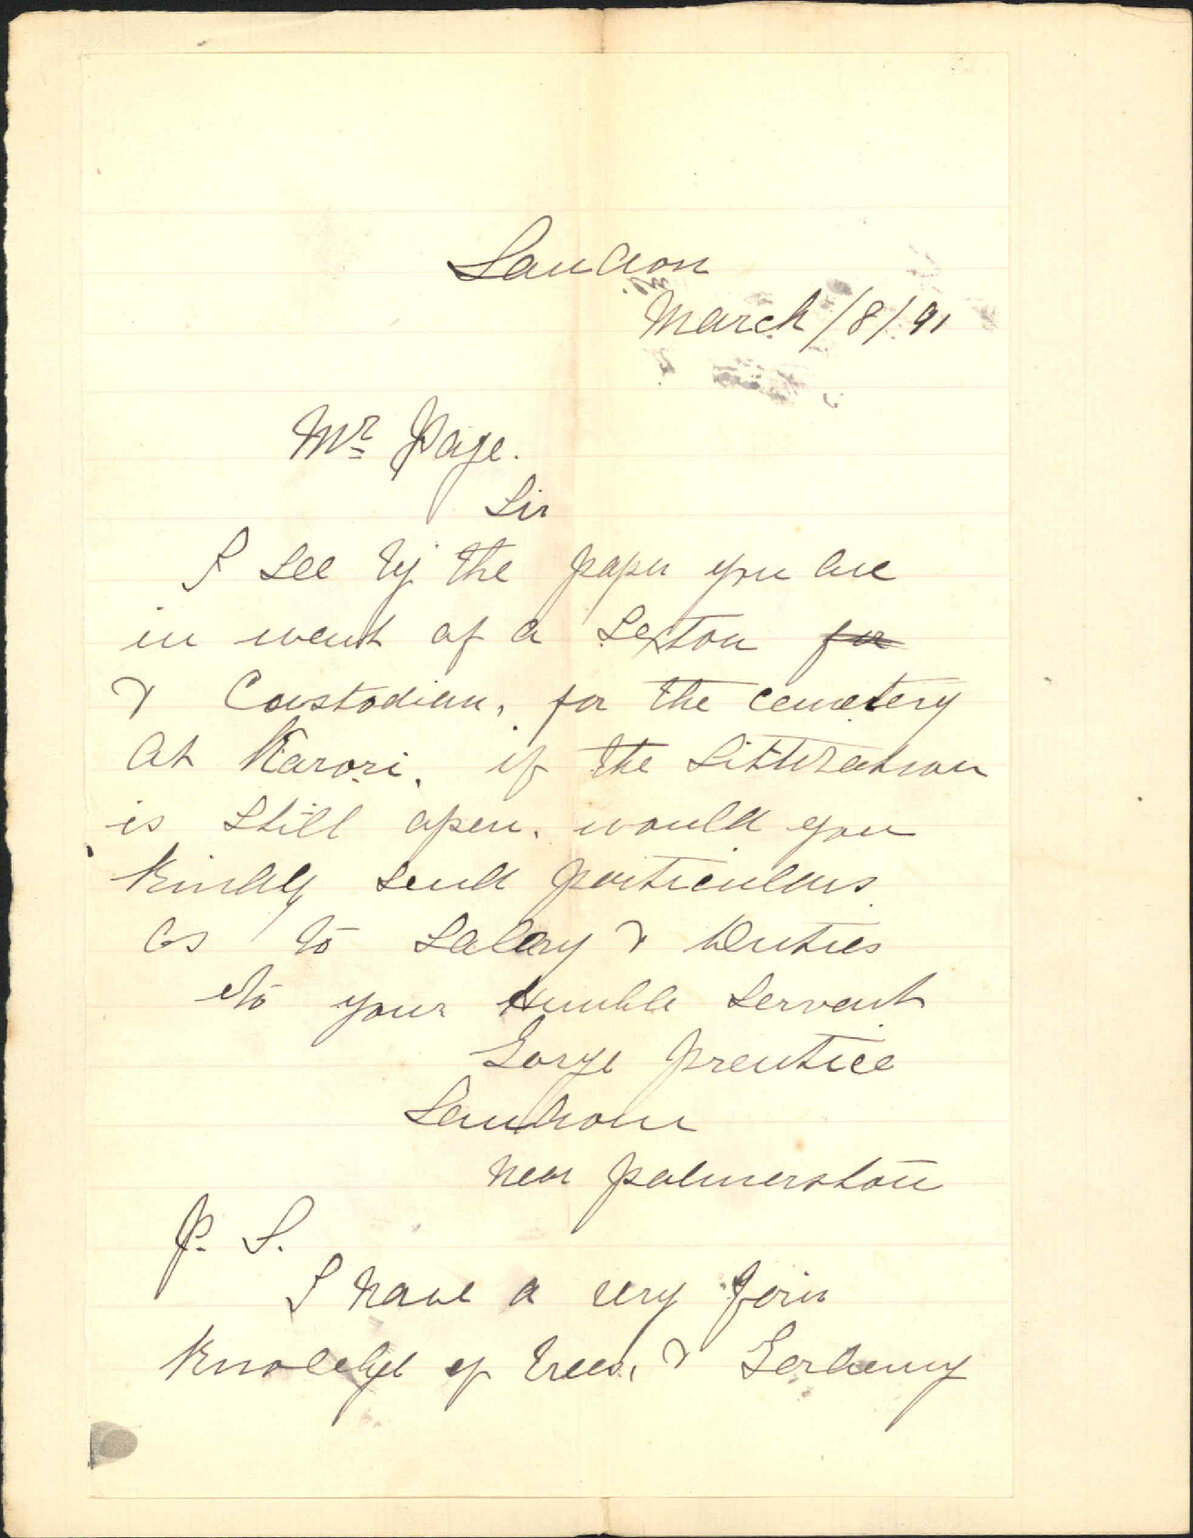 Sandon
March/8/91
Mr Page.
Sir
I see by the paper you are
in want of a Sexton for
& Coustodian, for the cemetery
at Karori, if the Sittutation
is still open. would you
Kindly send particulars
as to salary & Duties
to your Humble Servant
Gorge prentice
Sandon
near palmerston
P. S.
I have a very fair
Knoledge of trees, & Gardening